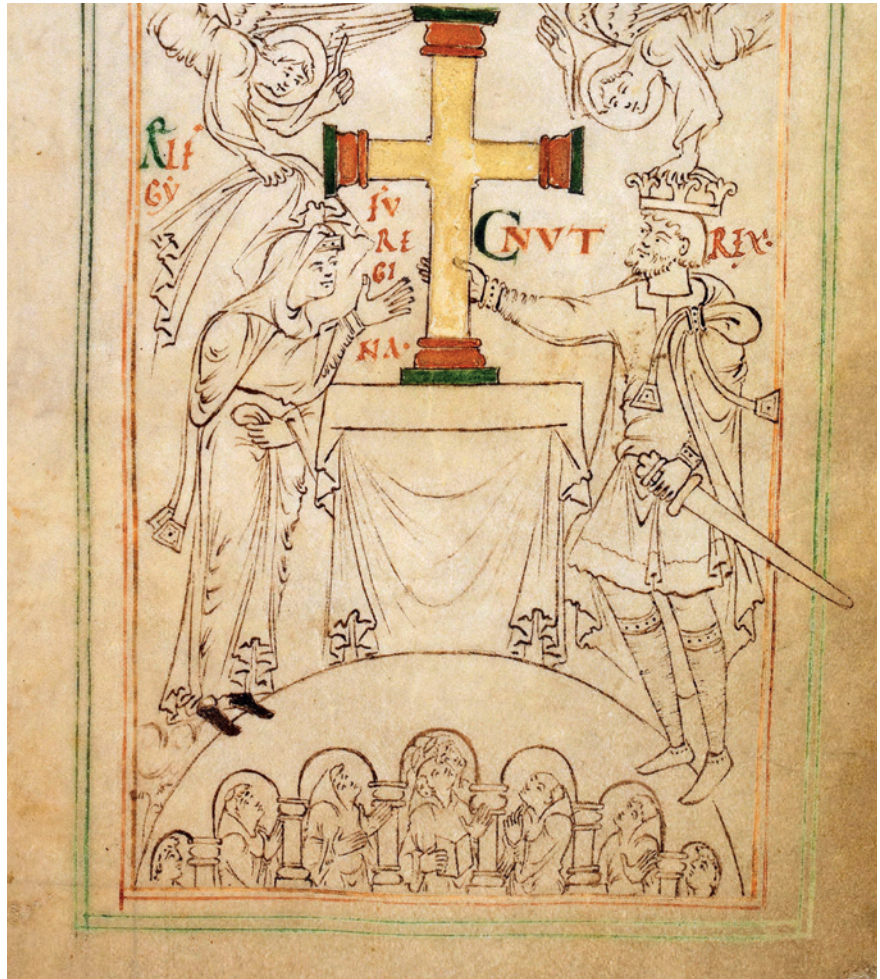 ÆLF
GẎ
FV
RE
GI
NA·
CNVT
REX·